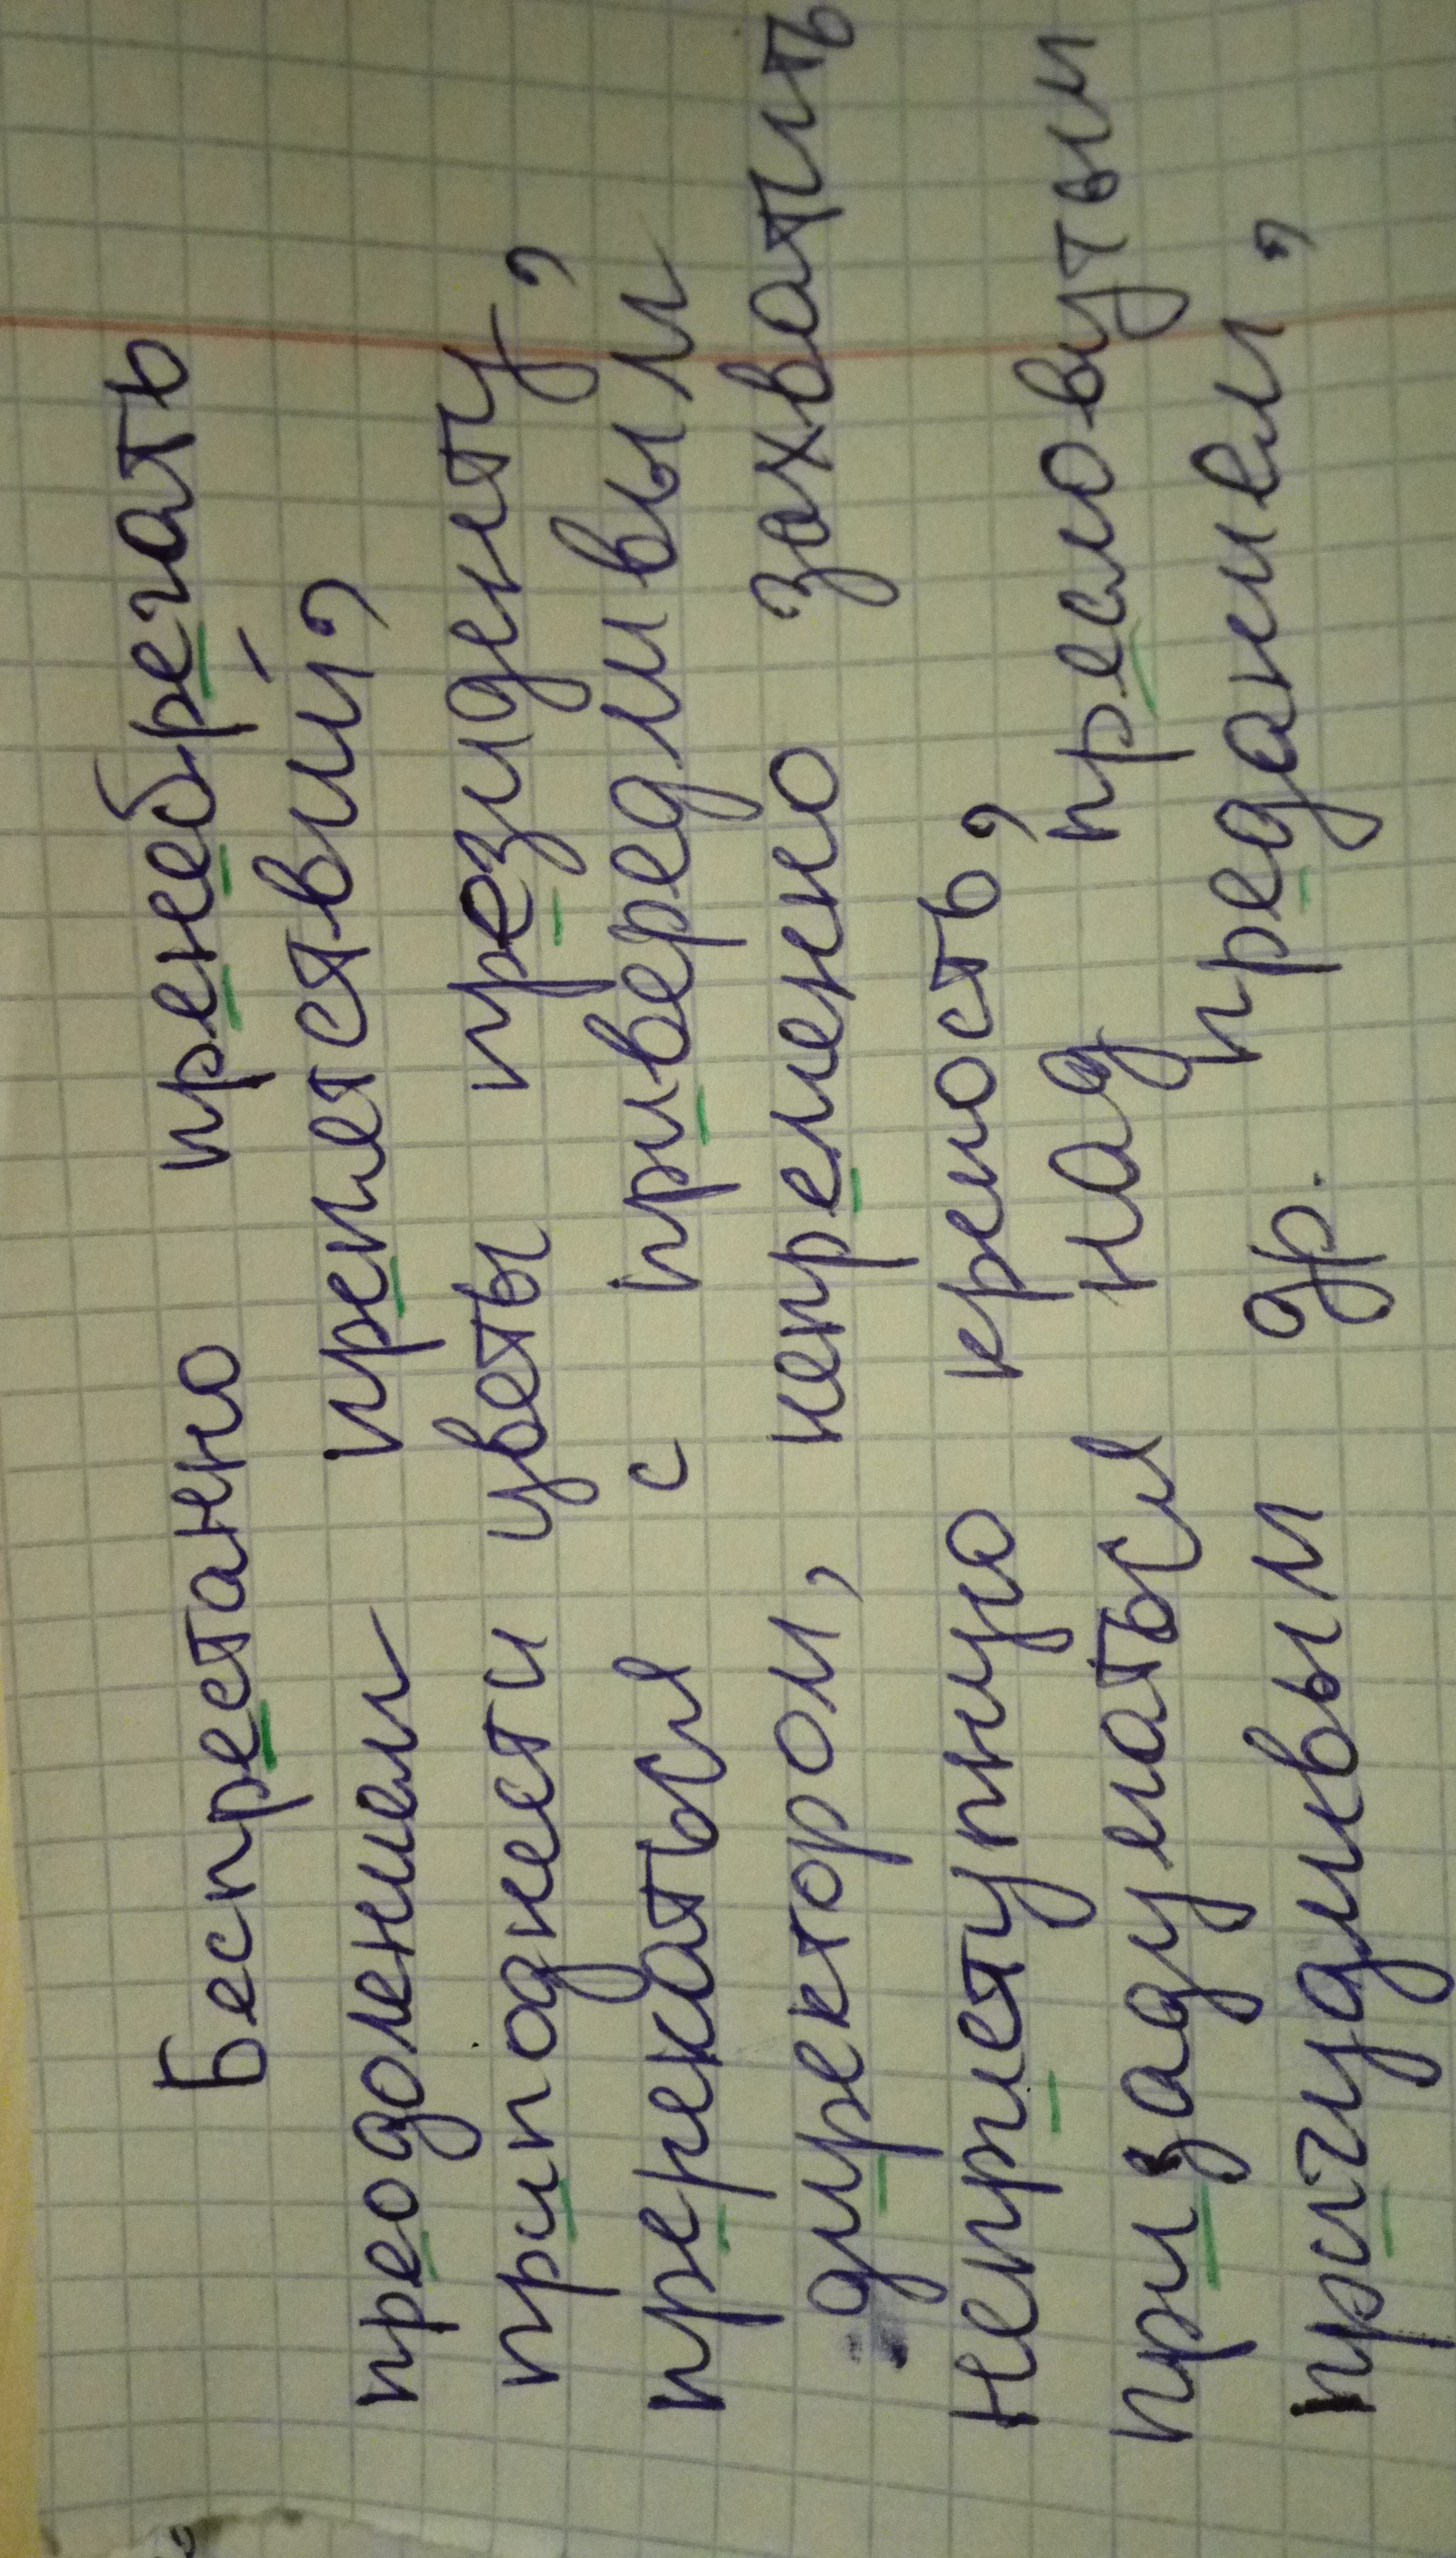 Беспрестанно пренебрегать
преодолением препетствий,
приподнести цветы президенту,
пререкаться с привередливым
директором, непременно захватить
неприетупную крепость,
призадуматься над пресловутым
пригудливым др. преданием,